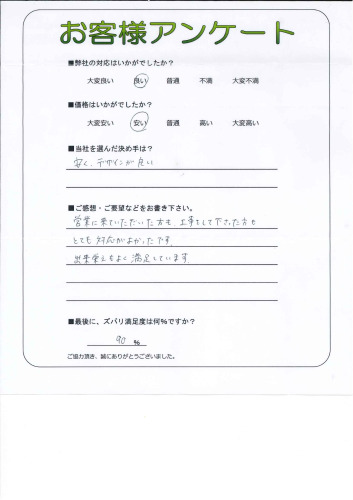 お客様アンケート
■弊社の対応はいかがでしたか?
大変良い 良い 普通 不満 大変不満
■価格はいかがでしたか?
大変安い 安い 普通 高い 大変高い
■当社を選んだ決め手は?
安く、デザインが良い
■ご感想・ご要望などをお書き下さい。
営業に来ていただいた方も、工事をして下さった方も
とても対応がよかったです。
出来栄えもよく満足しています。
■最後に、ズバリ満足度は何%ですか?
90 %
ご協力頂き、誠にありがとうございました。